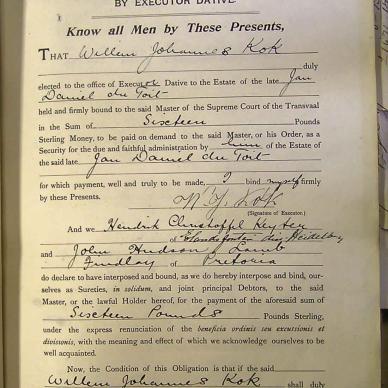 BY EXECUTOR DATIVE
Know all Men by These Presents,
THAT Willem Johannes Kok
duly
elected to the office of Executor Dative to the Estate of the late Jan
Daniel du Toit
held and firmly bound to the said Master of the Supreme Court of the Transvaal
in the Sum of Sixteen Pounds
Sterling Money, to be paid on demand to the said Master, or his Order, as a
Security for the due and faithful administration by him of the Estate of
the said late Jan Daniel du Toit
for which payment, well and truly to be made, I bind myself firmly
by these Presents.
W. J. Kok
(Signature of Executor.)
And we Hendrik Christoffel Keyter
of Elandsfontein dist Heidelberg
and John Hudson Lamb
Findlay of Pretoria
do declare to have interposed and bound, as we do hereby interpose and bind, our-
selves as Sureties, in solidum, and joint Principal Debtors, to the said
Master, or the lawful Holder hereof, for the payment of the aforesaid sum of
Sixteen Pounds Pounds Sterling,
under the express renunciation of the beneficia ordinis seu excussionis et
divisionis, with the meaning and effect of which we acknowledge ourselves to be
well acquainted.
Now, the Condition of this Obligation is that if the said
Willem Johannes Kok shall duly